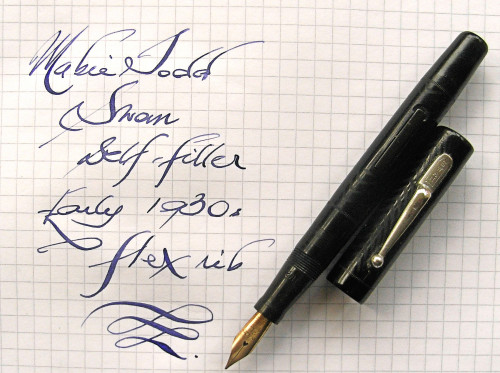 Mabie Todd
Swan
Self-filler
Early 1930s
flex nib